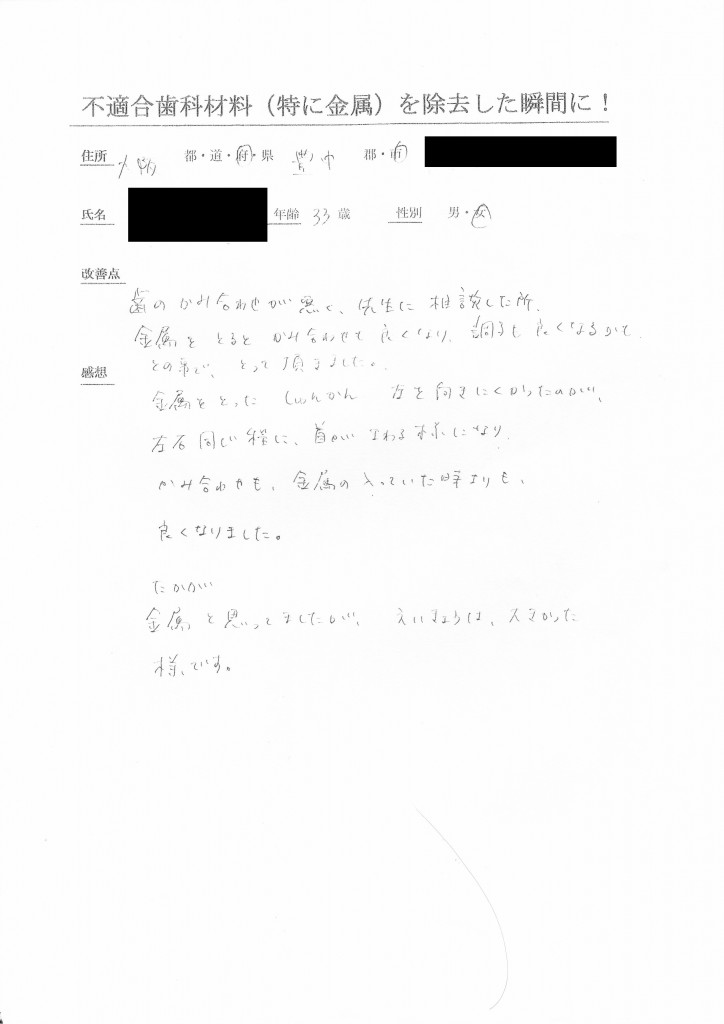 不適合歯科材料（特に金属）を除去した瞬間に！
住所 大阪 都・道・府・県 豊中 郡・市
氏名 年齢 33 歳 性別 男・女
改善点
歯のかみ合わせが悪く、先生に相談した所、
金属をとるとかみ合わせも良くなり、調子も良くなるかも
との事で、とって頂きました。
感想
金属をとった しゅんかん 左を向きにくかったのが、
左右同じ様に、首がまわる様になり、
かみ合わせも、金属の入っていた時よりも、
良くなりました。
たかが
金属と思ってましたが、 えいきょうは、大きかった
様です。